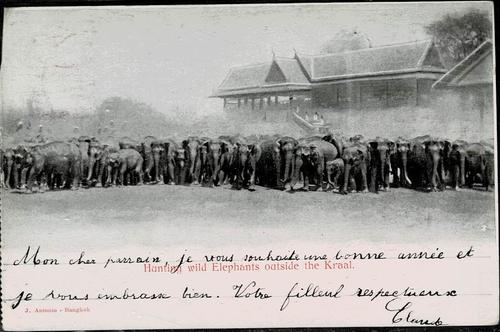 Mon cher parrain, je vous souhaite une bonne année et
Hunting wild Elephants outside the Kraal.
je vous embrasse bien. Votre filleul respectueux
J. Antonio - Bangkok